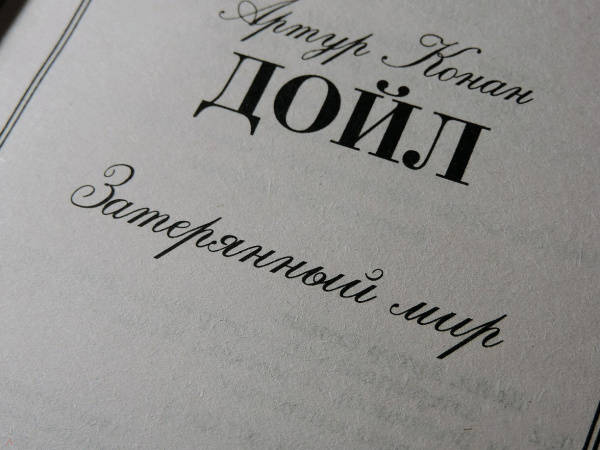 Артур Конан
ДОЙЛ
Затерянный мир